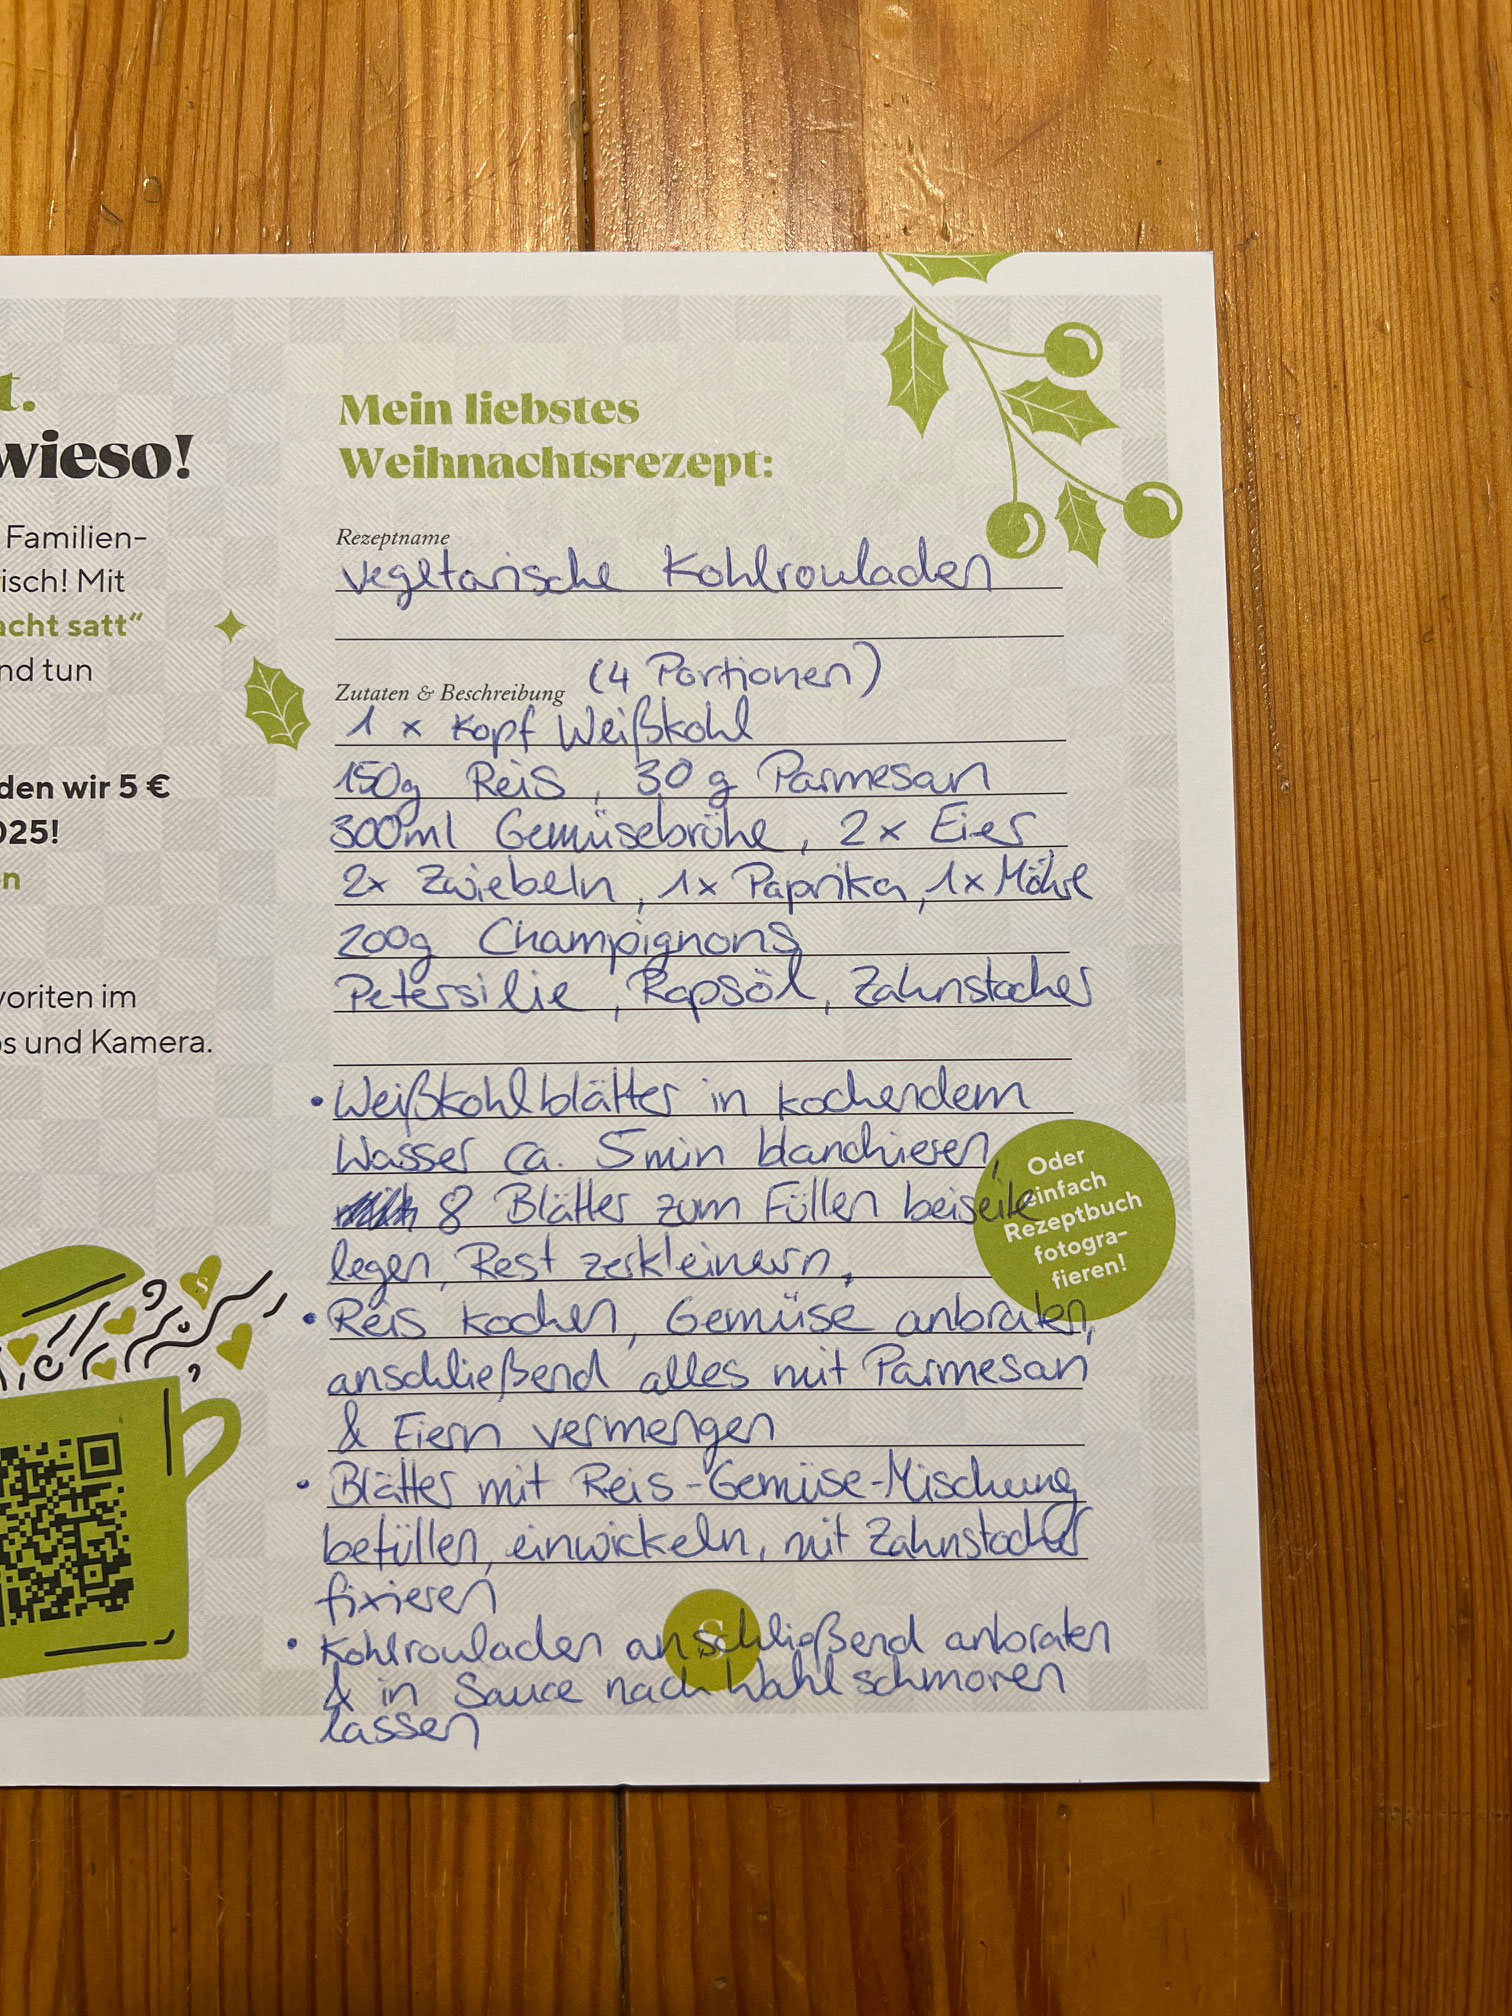 t.
wieso!
Familien-
isch! Mit
acht satt“
nd tun
den wir 5 €
025!
n
voriten im
os und Kamera.
Mein liebstes
Weihnachtsrezept:
Rezeptname
vegetarische Kohlrouladen
Zutaten & Beschreibung (4 Portionen)
1 x Kopf Weißkohl
150g Reis, 30 g Parmesan
300ml Gemüsebrühe, 2x Eier,
2x Zwiebeln, 1x Paprika, 1x Möhre
200g Champignons
Petersilie, Rapsöl, Zahnstocher
• Weißkohlblätter in kochendem
Wasser ca. 5min blanchieren,
8 Blätter zum Füllen beiseite
legen, Rest zerkleinern,
• Reis kochen, Gemüse anbraten,
anschließend alles mit Parmesan
& Eiern vermengen
• Blätter mit Reis-Gemüse-Mischung
befüllen, einwickeln, mit Zahnstocher
fixieren
• Kohlrouladen anschließend anbraten
& in Sauce nach Wahl schmoren
lassen
Oder
einfach
Rezeptbuch
fotogra-
fieren!
S
S